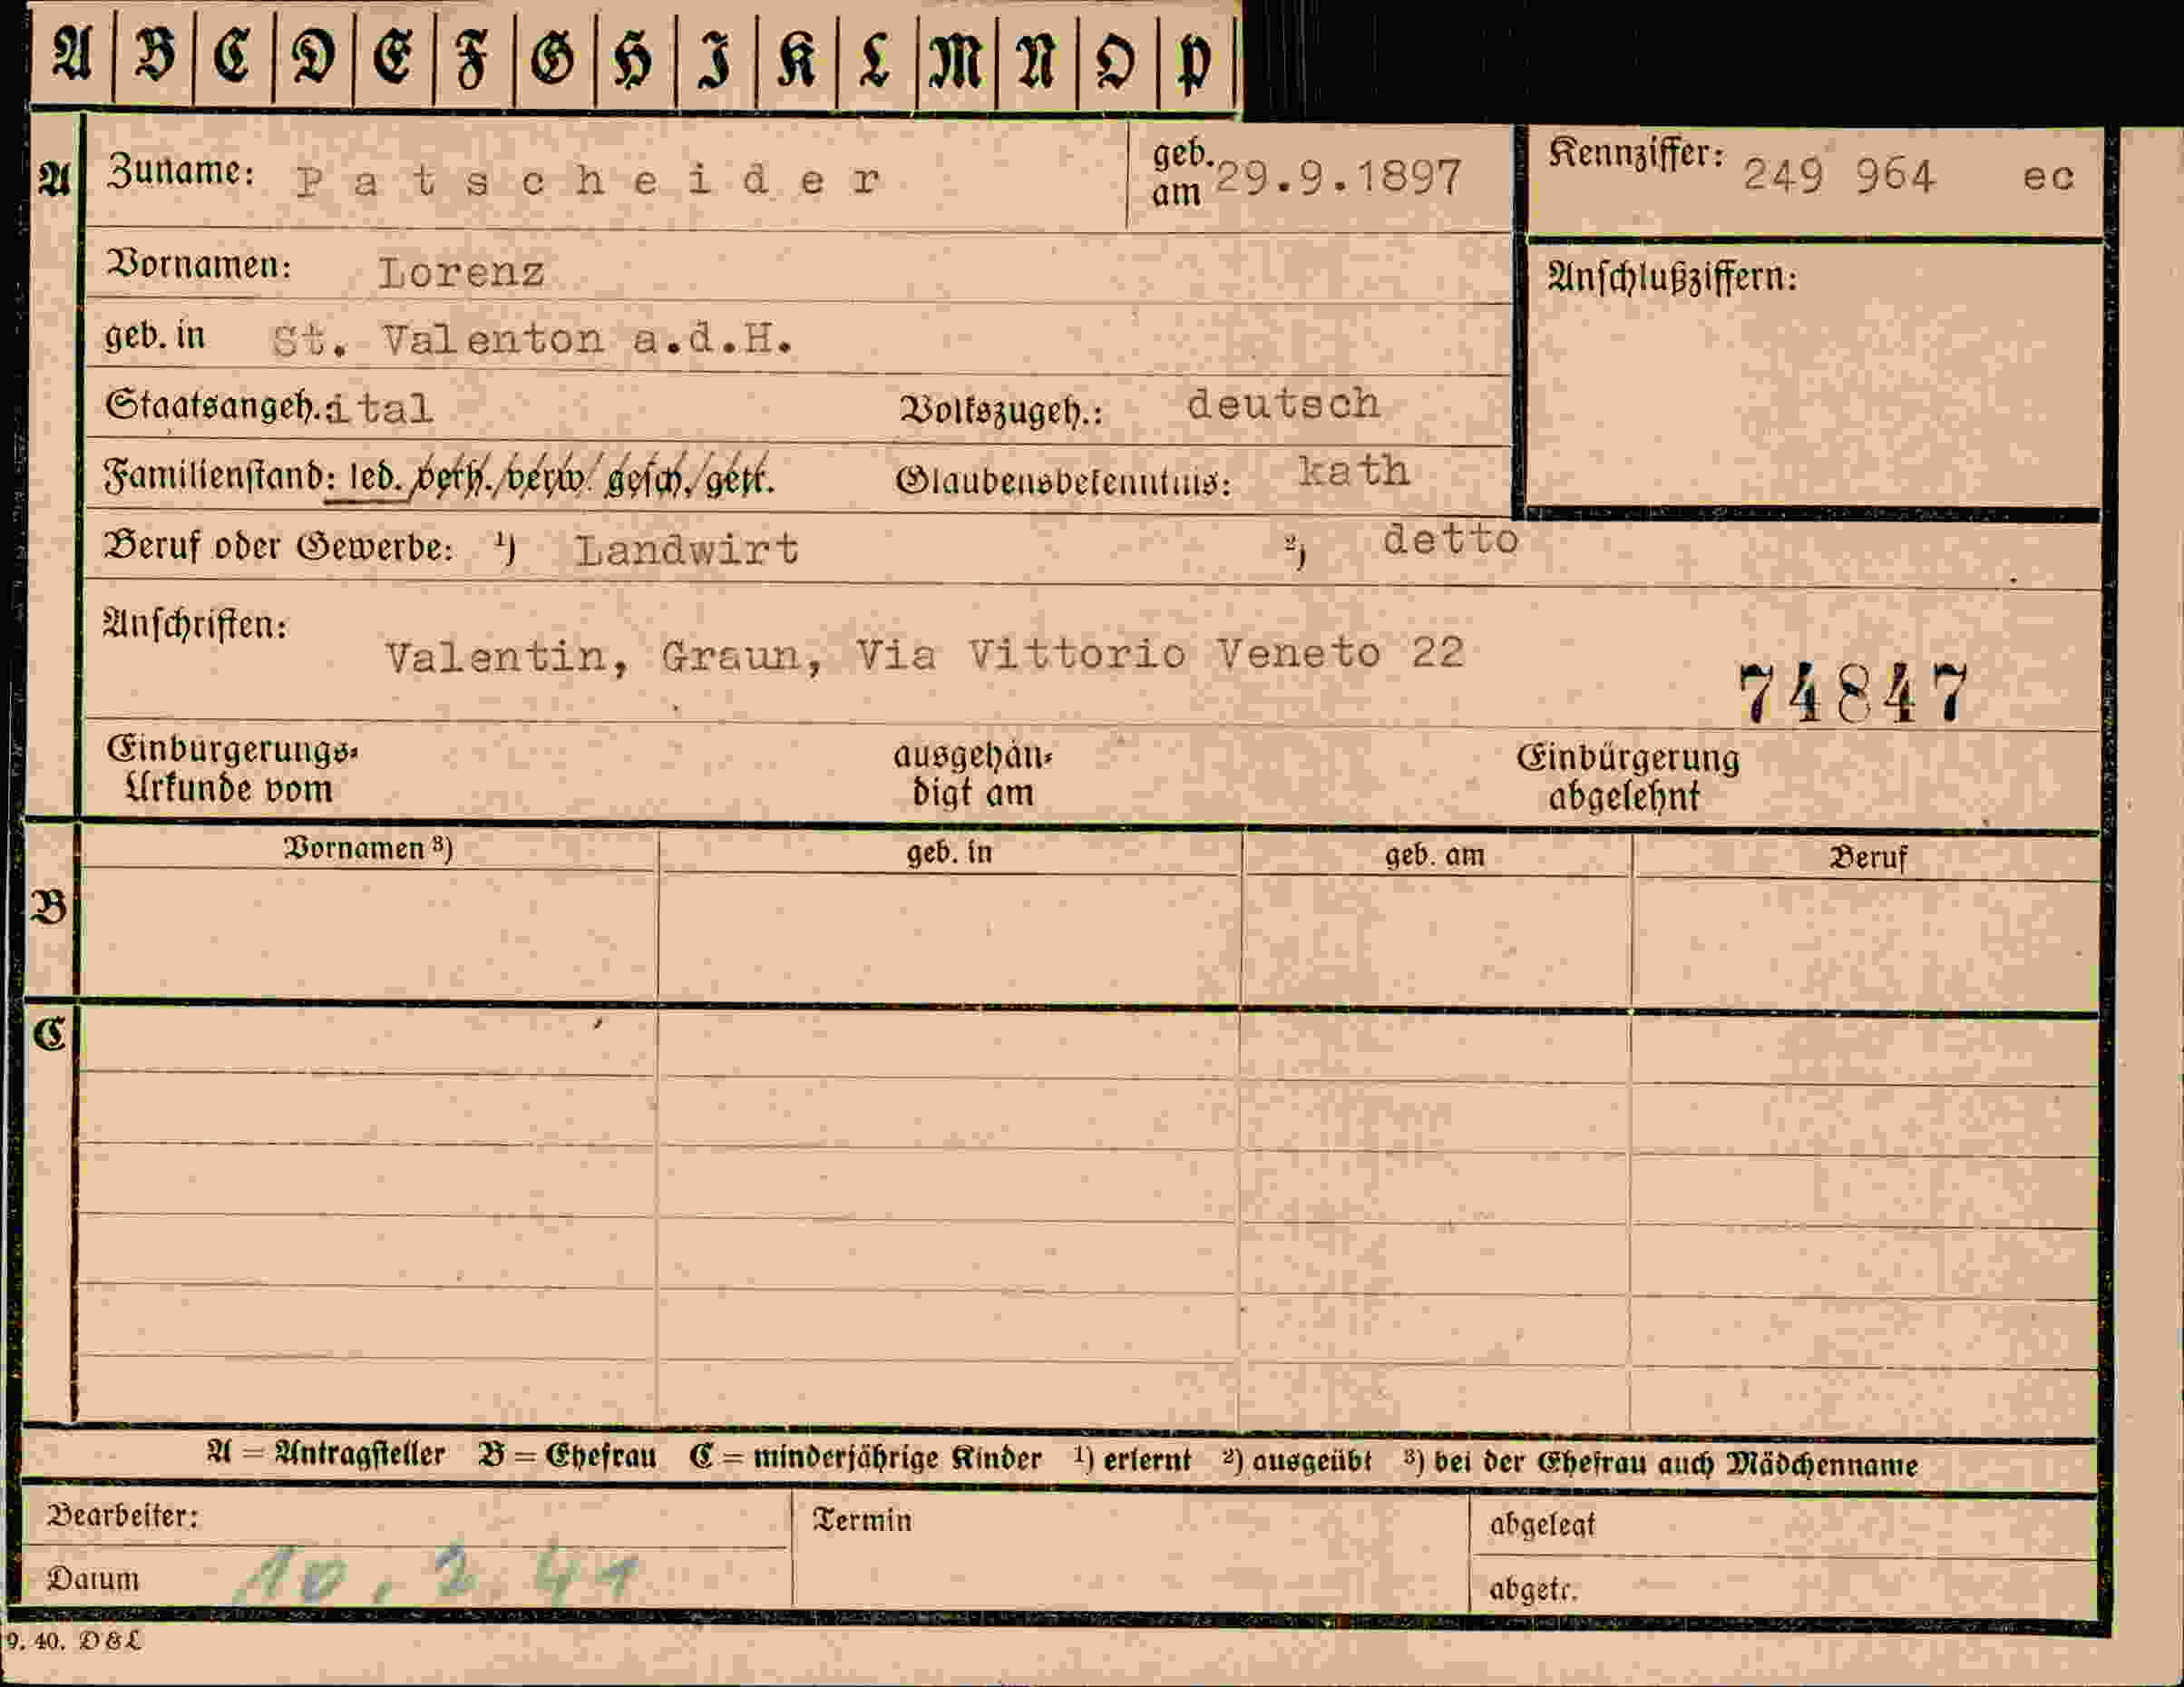 A B C D E F G H I K L M N O P
A Zuname: Patscheider geb. am 29.9.1897 Kennziffer: 249 964 ec
Vornamen: Lorenz Anschlußziffern:
geb. in St. Valenton a.d.H.
Staatsangeh. ital Volkszugeh.: deutsch
Familienstand: led. verh./verw./gesch./getr. Glaubensbekenntnis: kath
Beruf oder Gewerbe: ¹) Landwirt ²) detto
Anschriften:
Valentin, Graun, Via Vittorio Veneto 22
74847
Einbürgerungs-Urkunde vom ausgehändigt am Einbürgerung abgelehnt
Vornamen ³) geb. in geb. am Beruf
B
C
A = Antragsteller B = Ehefrau C = minderjährige Kinder ¹) erlernt ²) ausgeübt ³) bei der Ehefrau auch Mädchenname
Bearbeiter: Termin abgelegt
Datum 10. 2. 41 abgetr.
9. 40. D & L